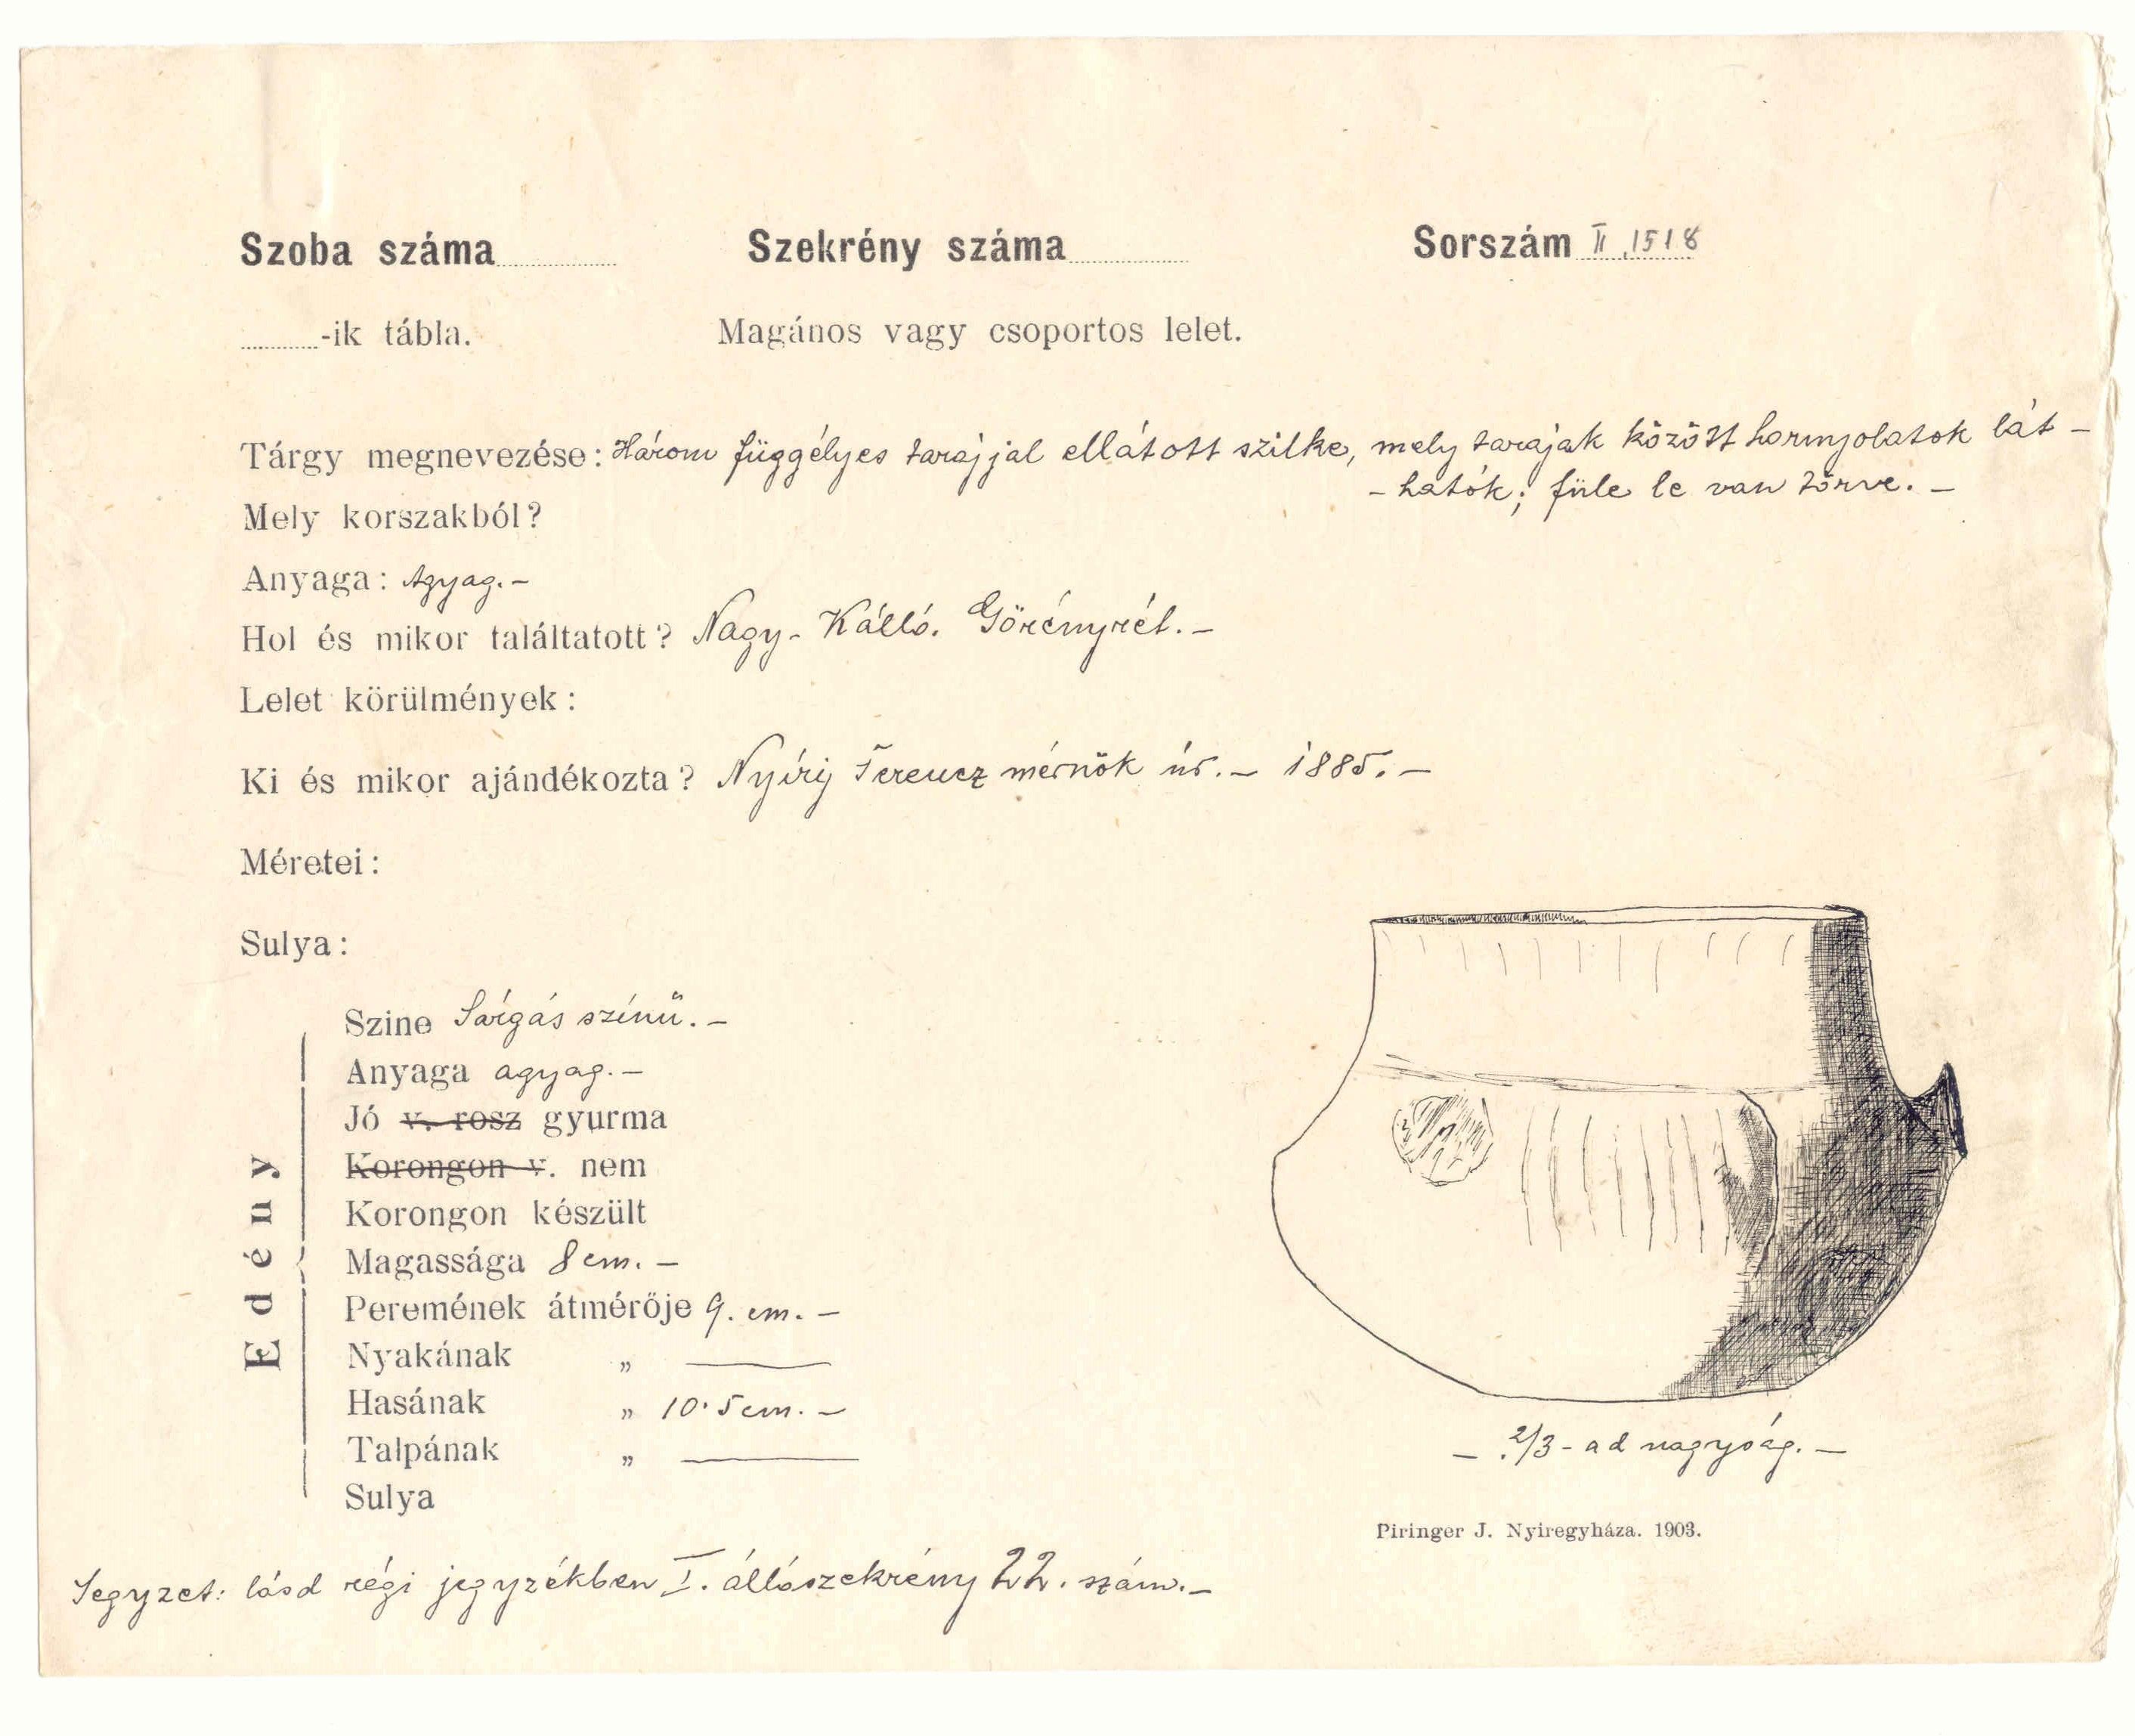 Szoba száma............ Szekrény száma............ Sorszám II, 1518
........-ik tábla. Magános vagy csoportos lelet.
Tárgy megnevezése: Három függélyes tarajjal ellátott szilke, mely tarajak között hornyolatok lát-
-hatók; füle le van törve. -
Mely korszakból?
Anyaga: Agyag. -
Hol és mikor találtatott? Nagy-Kálló. Görényrét. -
Lelet körülmények:
Ki és mikor ajándékozta? Nyírij Ferencz mérnök úr. - 1885. -
Méretei:
Sulya:
Edény
Szine Sárgás színű. -
Anyaga agyag. -
Jó v. rosz gyurma
Korongon v. nem
Korongon készült
Magassága 8 cm. -
Peremének átmérője 9. cm. -
Nyakának „ ———
Hasának „ 10·5 cm. -
Talpának „ ———
Sulya
- 2/3-ad nagyság. -
Piringer J. Nyiregyháza. 1903.
Jegyzet: lásd régi jegyzékben I. állószekrény 22. szám. -